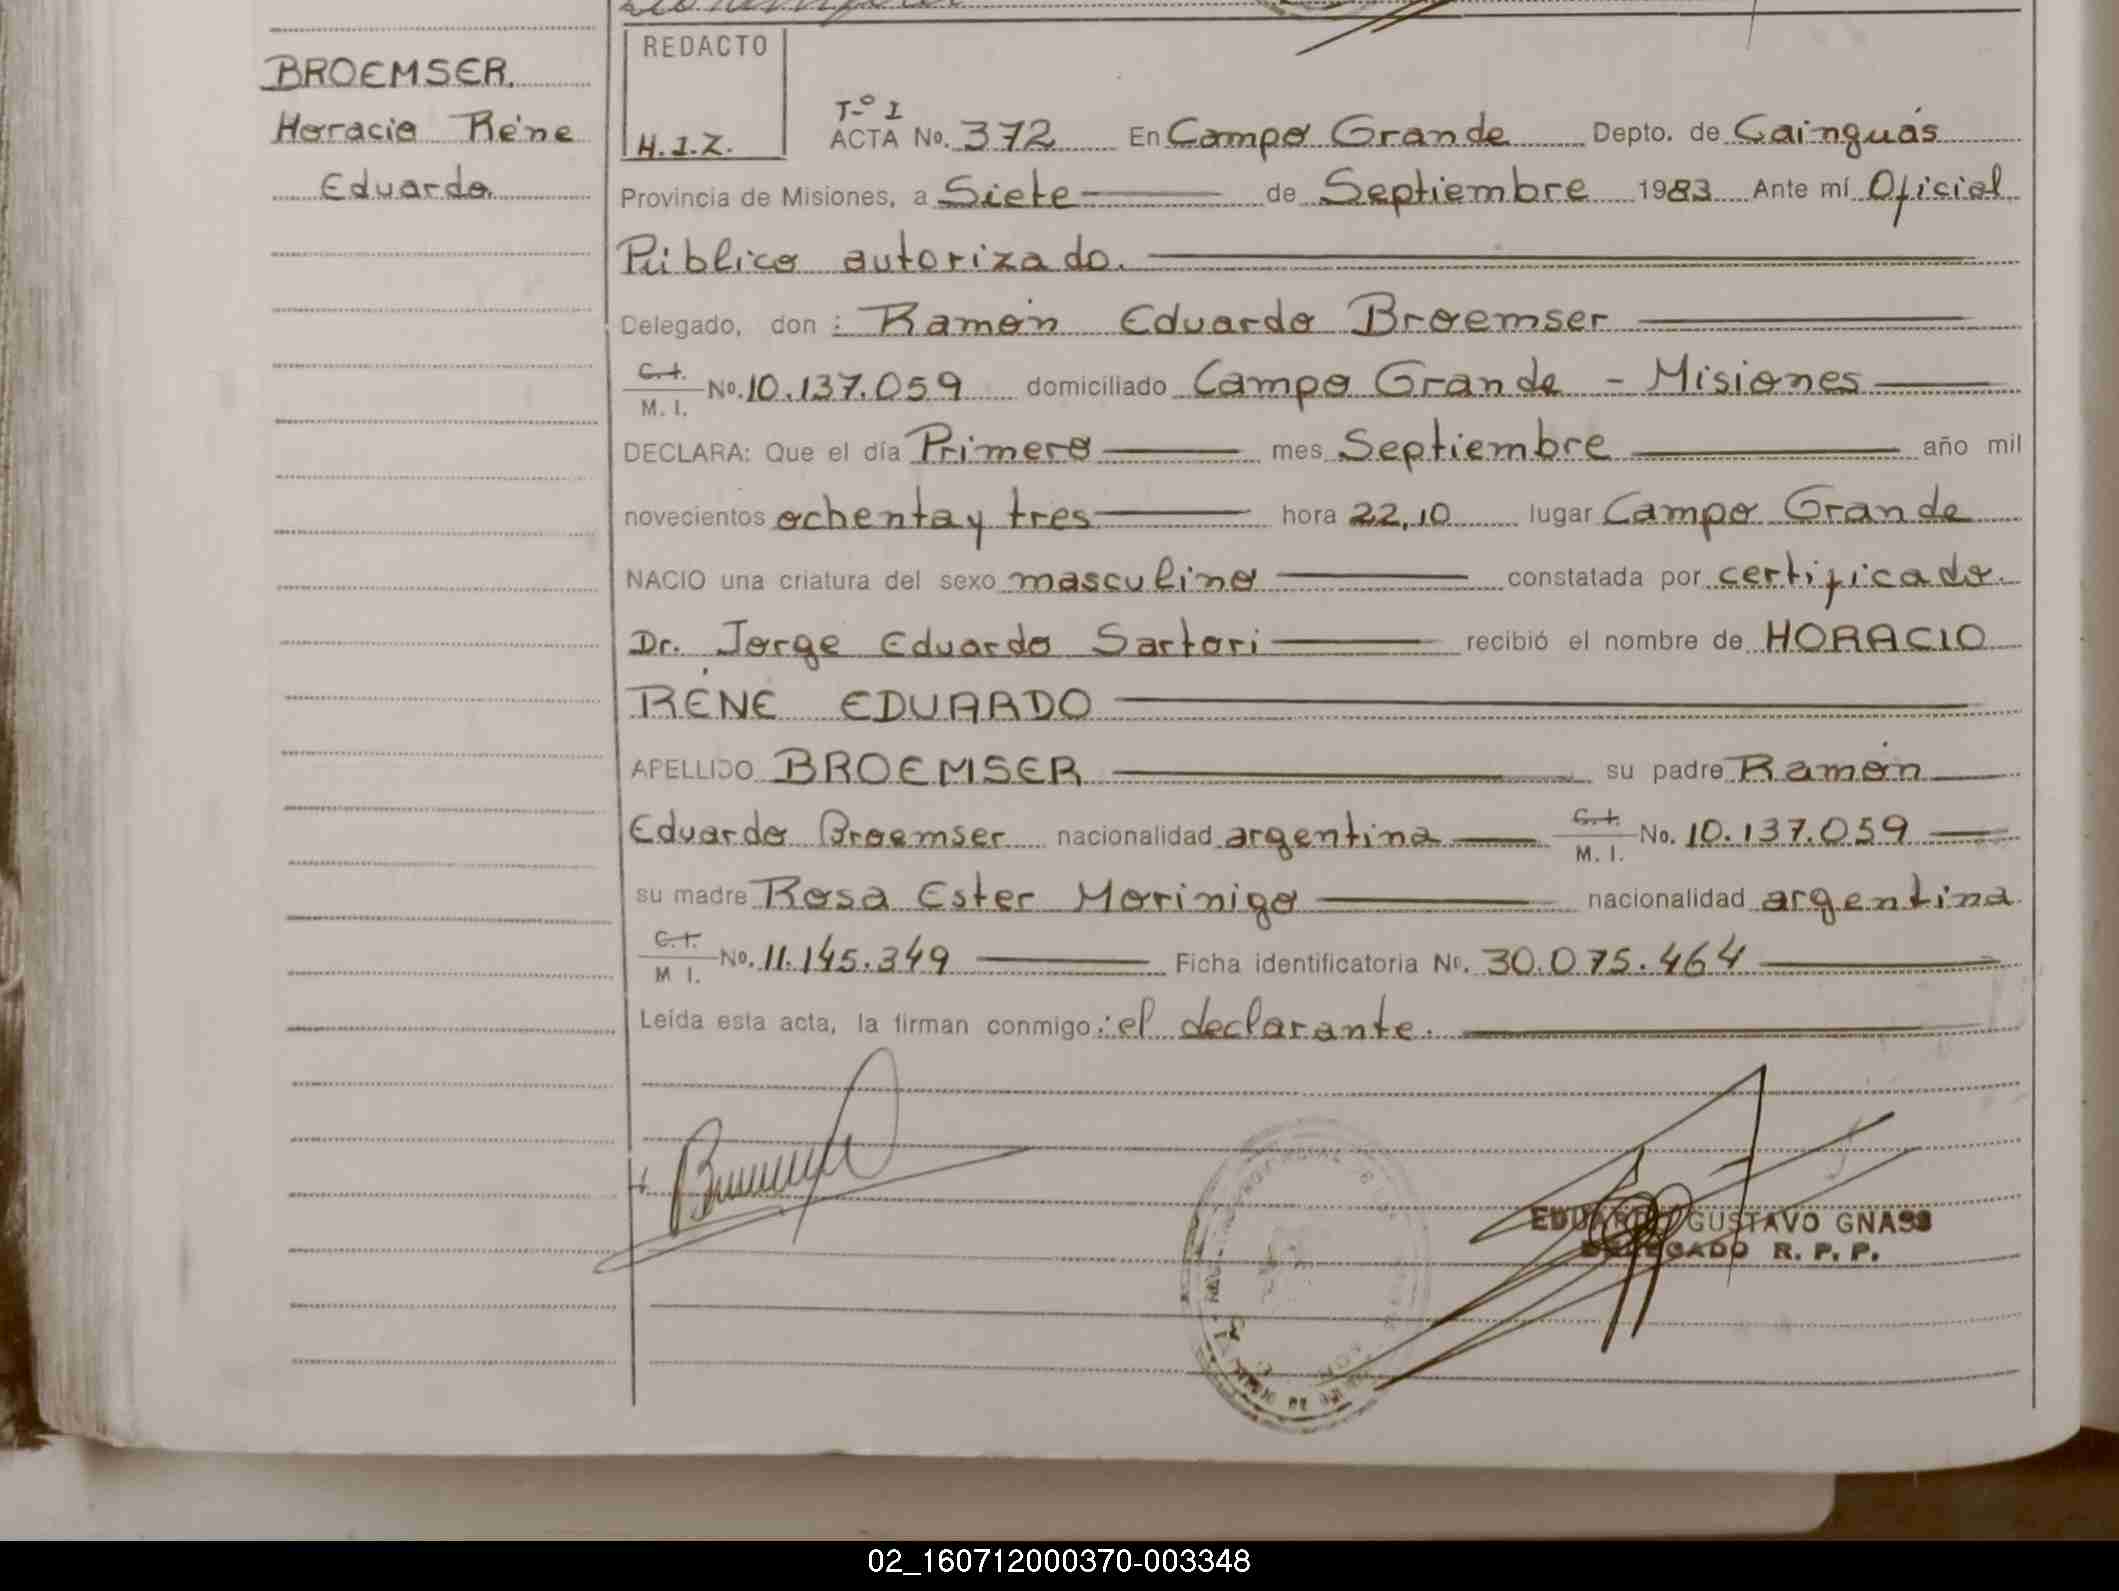 BROEMSER.
Horacio Réne
Eduardo.
REDACTO
H.I.Z.
T-º I
ACTA No. 372 En Campo Grande Depto. de Cainguás
Provincia de Misiones, a Siete de Septiembre 1983 Ante mí Oficial
Público autorizado.
Delegado, don : Ramón Eduardo Broemser
C.I. M.I. No. 10.137.059 domiciliado Campo Grande - Misiones
DECLARA: Que el día Primero mes Septiembre año mil
novecientos ochenta y tres hora 22,10 lugar Campo Grande
NACIO una criatura del sexo masculino constatada por certificado.
Dr. Jorge Eduardo Sartori recibió el nombre de HORACIO
RÉNE EDUARDO
APELLIDO BROEMSER su padre Ramón
Eduardo Broemser nacionalidad argentina C.I. M.I. No. 10.137.059
su madre Rosa Ester Morinigo nacionalidad argentina
C.I. M I. No. 11.145.349 Ficha identificatoria No. 30.075.464
Leída esta acta, la firman conmigo: el declarante.
EDUARDO GUSTAVO GNASS
DELEGADO R. P. P.
02_160712000370-003348